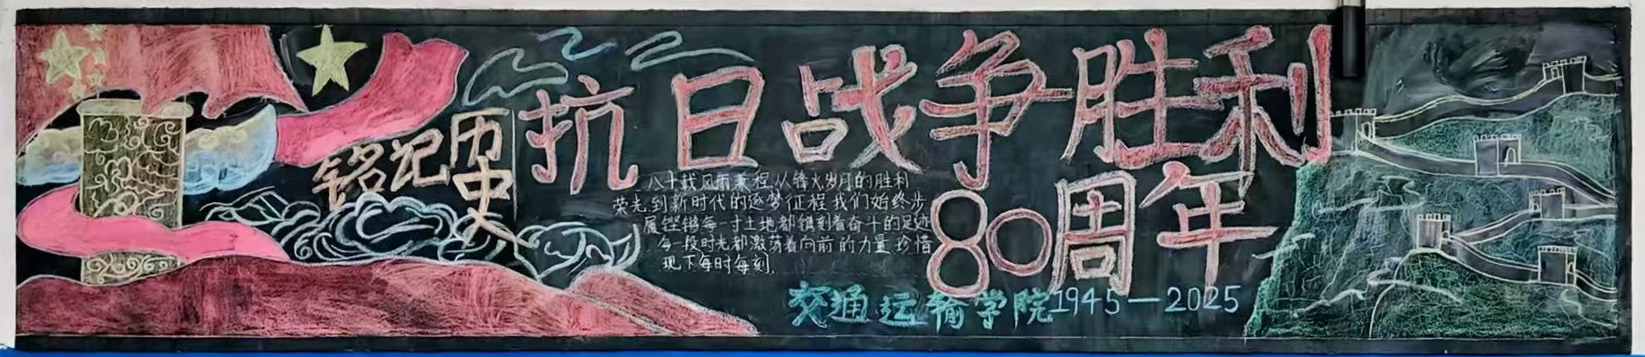 铭记历史
抗日战争胜利
80周年
八十载风雨兼程,从锋火岁月的胜利
荣光到新时代的逐梦征程我们始终步
履铿锵每一寸土地都镌刻着奋斗的足迹
每一段时光都激荡着向前的力量 珍惜
现下每时每刻.
交通运输学院1945—2025